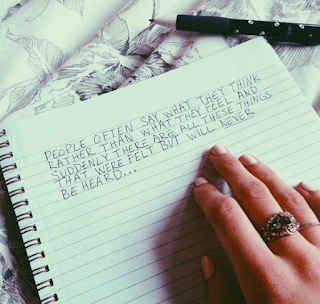 PEOPLE OFTEN SAY WHAT THEY THINK
RATHER THAN WHAT THEY FEEL AND
SUDDENLY THERE ARE ALL THESE THINGS
THAT WERE FELT BUT WILL NEVER
BE HEARD...